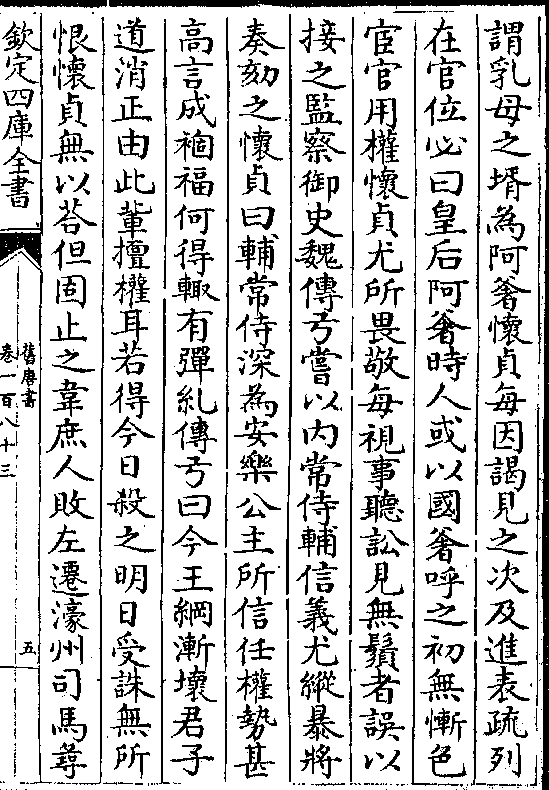 謂乳母之壻為阿奢懷貞每因謁見之次及進表疏列
在官位必曰皇后阿奢時人或以國奢呼之初無慚色
宦官用權懷貞尤所畏敬每視事聽訟見無鬚者誤以
接之監察御史魏傳弓嘗以內常侍輔信義尤縱暴將
奏劾之懷貞曰輔常侍深為安樂公主所信任權勢甚
高言成禍福何得輙有彈糺傳弓曰今王綱漸壞君子
道消正由此輩擅權耳若得今日殺之明日受誅無所
恨懷貞無以荅但固止之韋庶人敗左遷濠州司馬尋
欽定四庫全書
舊唐書
卷一百八十三
五